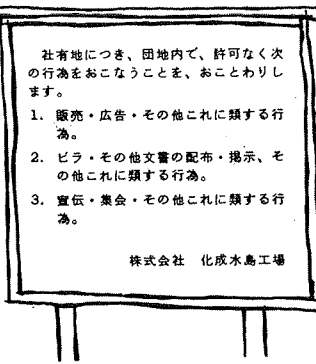 社有地につき、団地内で、許可なく次
の行為をおこなうことを、おことわりし
ます。
1. 販売・広告・その他これに類する行
為。
2. ビラ・その他文書の配布・掲示、そ
の他これに類する行為。
3. 宣伝・集会・その他これに類する行
為。
株式会社 化成水島工場